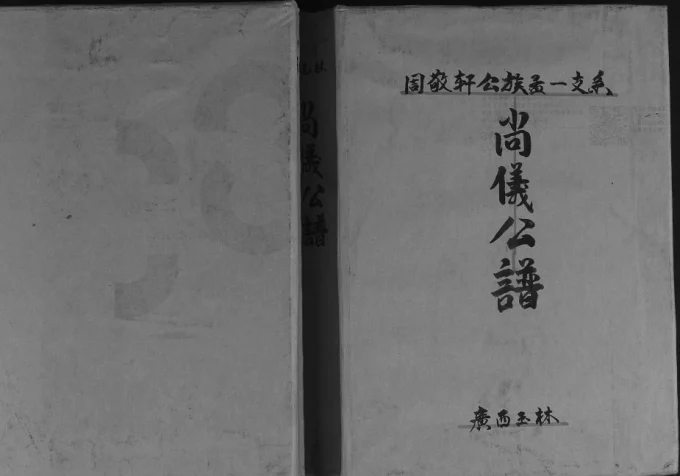 周敬轩公族孟一支系
尚儀公譜
廣西玉林
尚儀公譜